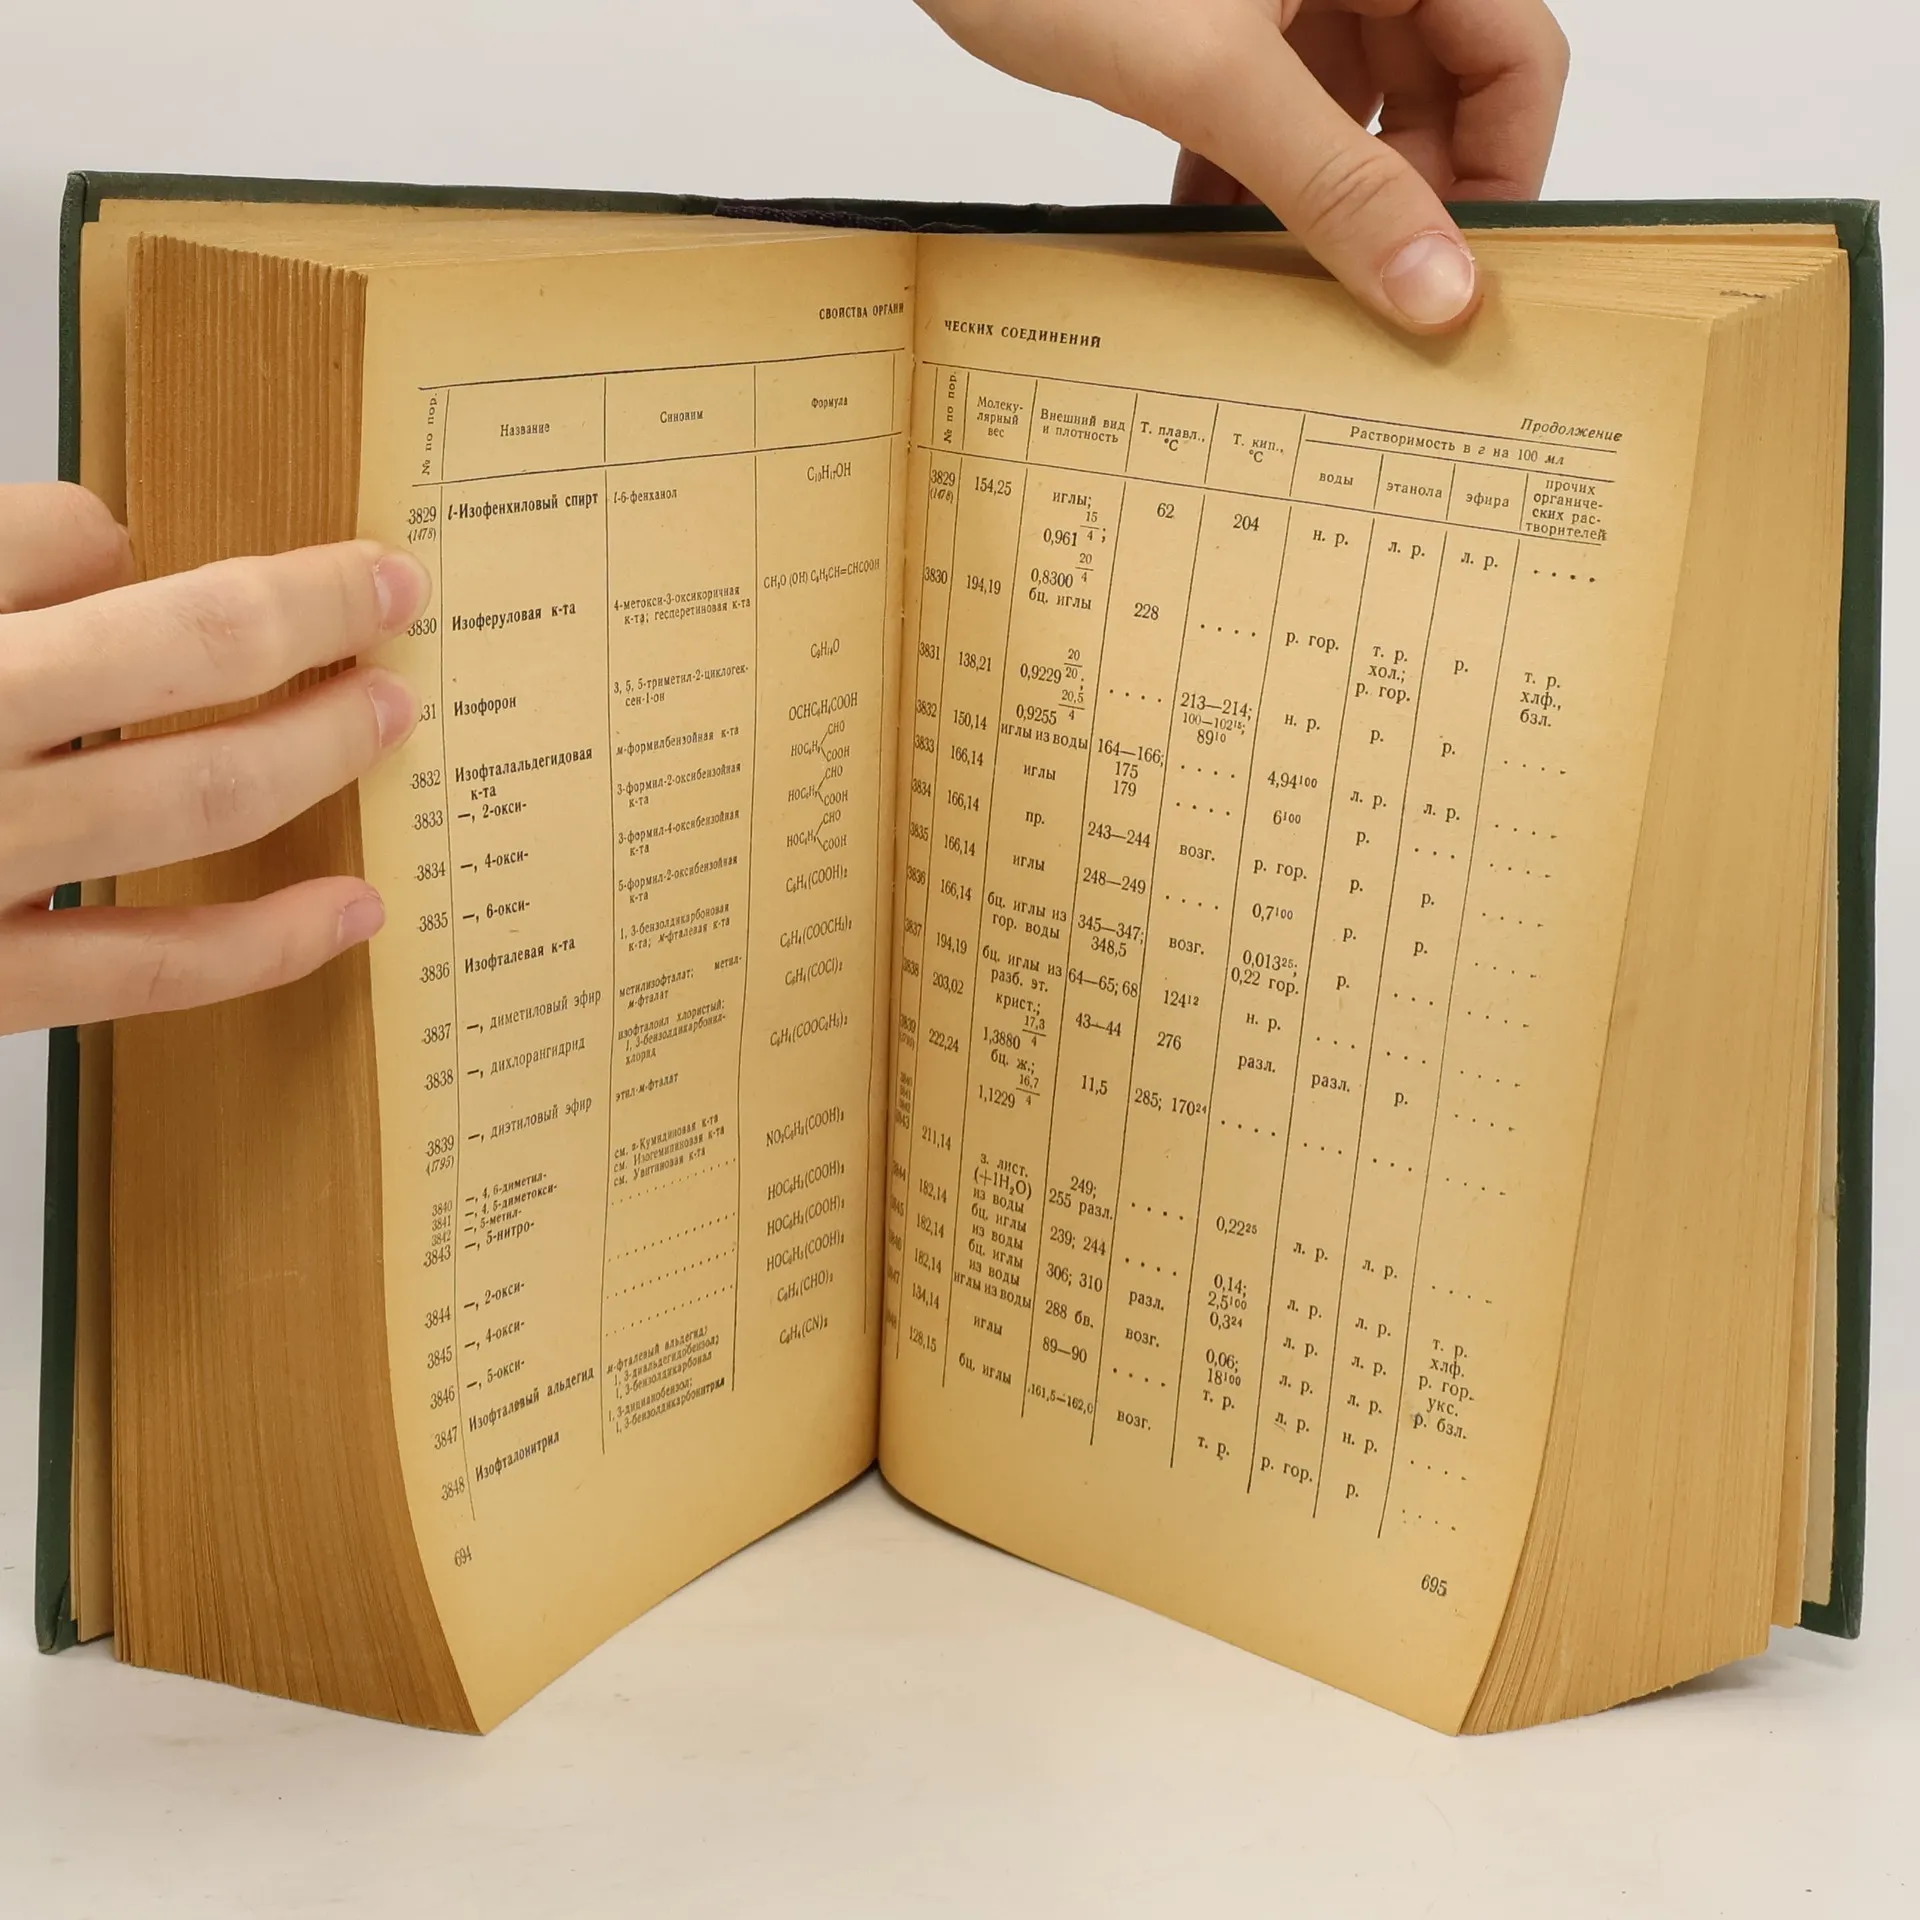 СВОЙСТВА ОРГАНИ
№ по пор.
Название
Синоним
Формула
3829 l-Изофенхиловый спирт l-6-фенханол C₁₀H₁₇OH
(1478)
3830 Изоферуловая к-та 4-метокси-3-оксикоричная CH₃O (OH) C₆H₃CH=CHCOOH
к-та; гесперетиновая к-та
31 Изофорон 3, 5, 5-триметил-2-циклогек- C₉H₁₄O
сен-1-он
3832 Изофталальдегидовая м-формилбензойная к-та OCHC₆H₄COOH
к-та
3833 —, 2-окси- 3-формил-2-оксибензойная HOC₆H₃ CHO
к-та COOH
3834 —, 4-окси- 3-формил-4-оксибензойная HOC₆H₃ CHO
к-та COOH
3835 —, 6-окси- 5-формил-2-оксибензойная HOC₆H₃ CHO
к-та COOH
3836 Изофталевая к-та 1, 3-бензолдикарбоновая C₆H₄(COOH)₂
к-та; м-фталевая к-та
3837 —, диметиловый эфир метилизофталат; метил- C₆H₄(COOCH₃)₂
м-фталат
3838 —, дихлорангидрид изофталоил хлористый; C₆H₄(COCl)₂
1, 3-бензолдикарбонил-
хлорид
3839 —, диэтиловый эфир этил-м-фталат C₆H₄(COOC₂H₅)₂
(1795)
3840 —, 4, 6-диметил- см. α-Кумидиновая к-та
3841 —, 4, 5-диметокси- см. Изогемипиновая к-та
3842 —, 5-метил- см. Увитиновая к-та
3843 —, 5-нитро- . . . . . . . . . . NO₂C₆H₃(COOH)₂
3844 —, 2-окси- . . . . . . . . . . HOC₆H₃(COOH)₂
3845 —, 4-окси- . . . . . . . . . . HOC₆H₃(COOH)₂
3846 —, 5-окси- . . . . . . . . . . HOC₆H₃(COOH)₂
3847 Изофталевый альдегид м-фталевый альдегид; C₆H₄(CHO)₂
1, 3-диальдегидобензол;
1, 3-бензолдикарбонал
3848 Изофталонитрил 1, 3-дицианобензол; C₆H₄(CN)₂
1, 3-бензолдикарбонитрил
694
ЧЕСКИХ СОЕДИНЕНИЙ
Продолжение
№ по пор.
Молеку-
лярный
вес
Внешний вид
и плотность
Т. плавл.,
°C
Т. кип.,
°C
Растворимость в г на 100 мл
воды
этанола
эфира
прочих
органиче-
ских рас-
творителей
3829 154,25 иглы; 62 204 н. р. л. р. л. р. . . . .
(1478) 0,961 15/4;
0,8300 20/4
3830 194,19 бц. иглы 228 . . . . р. гор. т. р. р. т. р.
хол.; хлф.,
р. гор. бзл.
3831 138,21 0,9229 20/20; . . . . 213—214; н. р. р. р. . . . .
0,9255 20,5/4 100—102¹⁵;
89¹⁰
3832 150,14 иглы из воды 164—166; . . . . 4,94¹⁰⁰ л. р. л. р. . . . .
175
3833 166,14 иглы 179 . . . . 6¹⁰⁰ р. . . . . . . .
3834 166,14 пр. 243—244 возг. р. гор. р. р. . . . .
3835 166,14 иглы 248—249 . . . . 0,7¹⁰⁰ р. р. . . . .
3836 166,14 бц. иглы из 345—347; возг. 0,013²⁵; р. . . . . . . .
гор. воды 348,5 0,22 гор.
3837 194,19 бц. иглы из 64—65; 68 124¹² н. р. . . . . . . . . . .
разб. эт.
3838 203,02 крист.; 43—44 276 разл. разл. р. . . . .
1,3880 17,3/4
3839 222,24 бц. ж.; 11,5 285; 170²⁴ . . . . . . . . . . . . . .
(1795) 1,1229 16,7/4
3840
3841
3842
3843 211,14 з. лист. 249; . . . . 0,22²⁵ л. р. л. р. . . . .
(+1H₂O) 255 разл.
из воды
3844 182,14 бц. иглы 239; 244 . . . . 0,14; л. р. л. р. т. р.
из воды 2,5¹⁰⁰ хлф.
3845 182,14 бц. иглы 306; 310 разл. 0,3²⁴ л. р. л. р. р. гор.
из воды укс.
3846 182,14 иглы из воды 288 бв. возг. 0,06; л. р. л. р. р. бзл.
18¹⁰⁰
3847 134,14 иглы 89—90 . . . . т. р. л. р. н. р. . . . .
3848 128,15 бц. иглы 161,5—162,0 возг. т. р. р. гор. р. . . . .
695